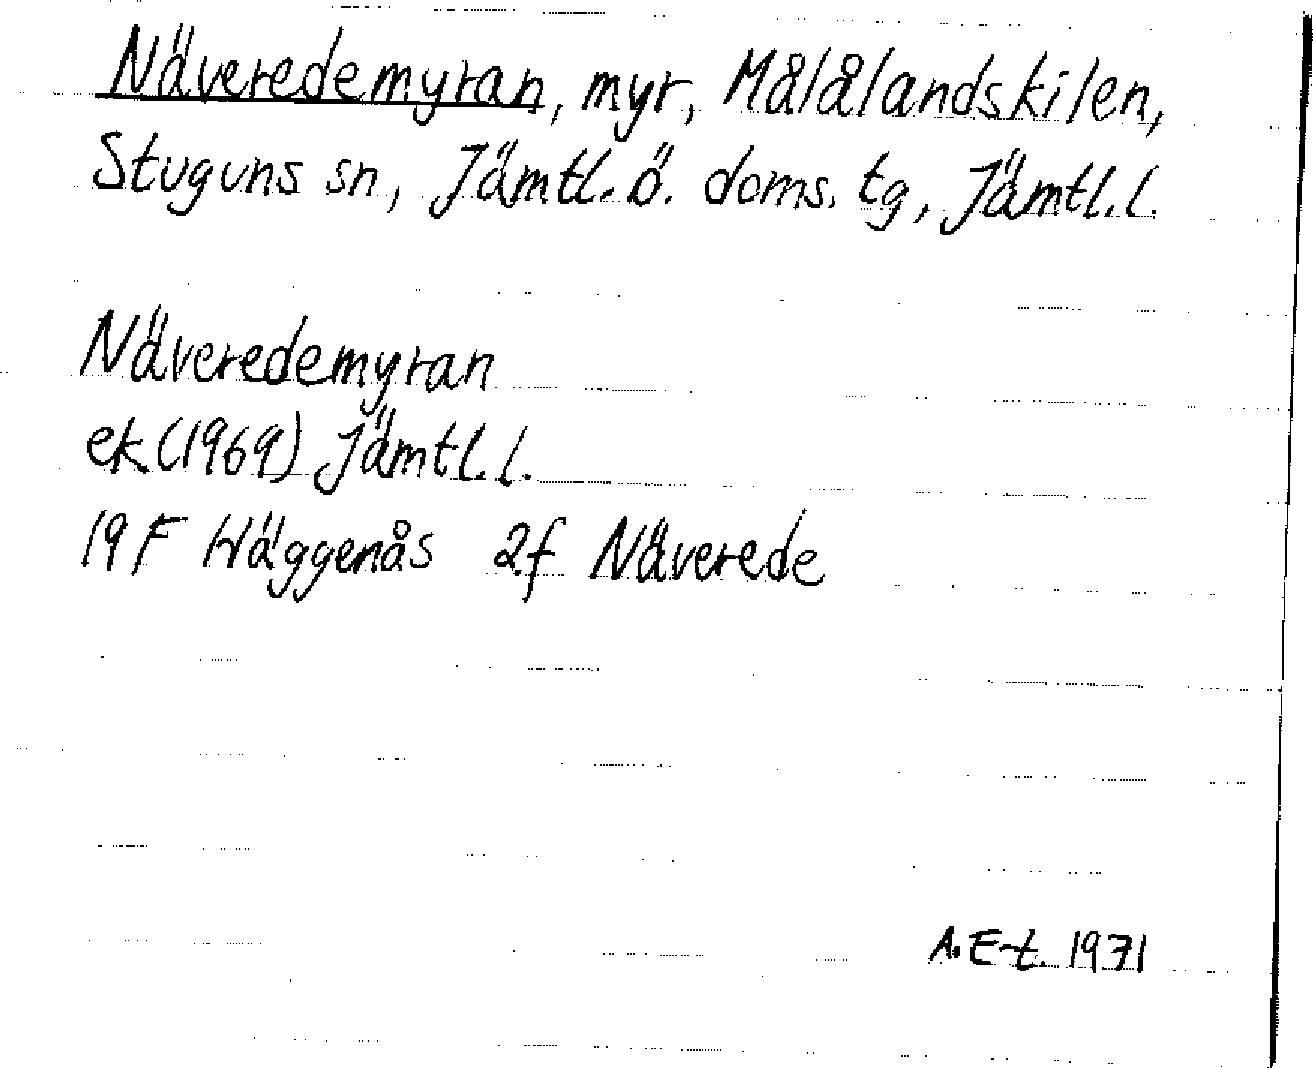 Näveredemyran, myr, Målålandskilen,
Stuguns sn, Jämtl. ö. doms. tg, Jämtl. l.
Näveredemyran
ek (1969) Jämtl. l.
19 F Häggenås 2f Näverede
A. E-t. 1971